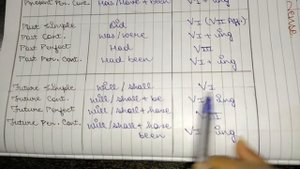 Present Per. Con. Has/Have + been V I + ing
Past Simple Did V I (V II Aff.)
Past Cont. was/were V I + ing
Past Perfect Had V III
Had been V I + ing
Future Simple will / shall V I
Future Cont. will / shall + be V I ing
Future Perfect will / shall + have III
Future Per. Cont. will / shall + have been V I + ing